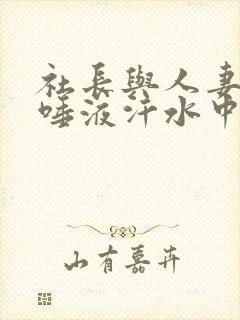 社長與人妻
唾液汗水中
山有嘉卉